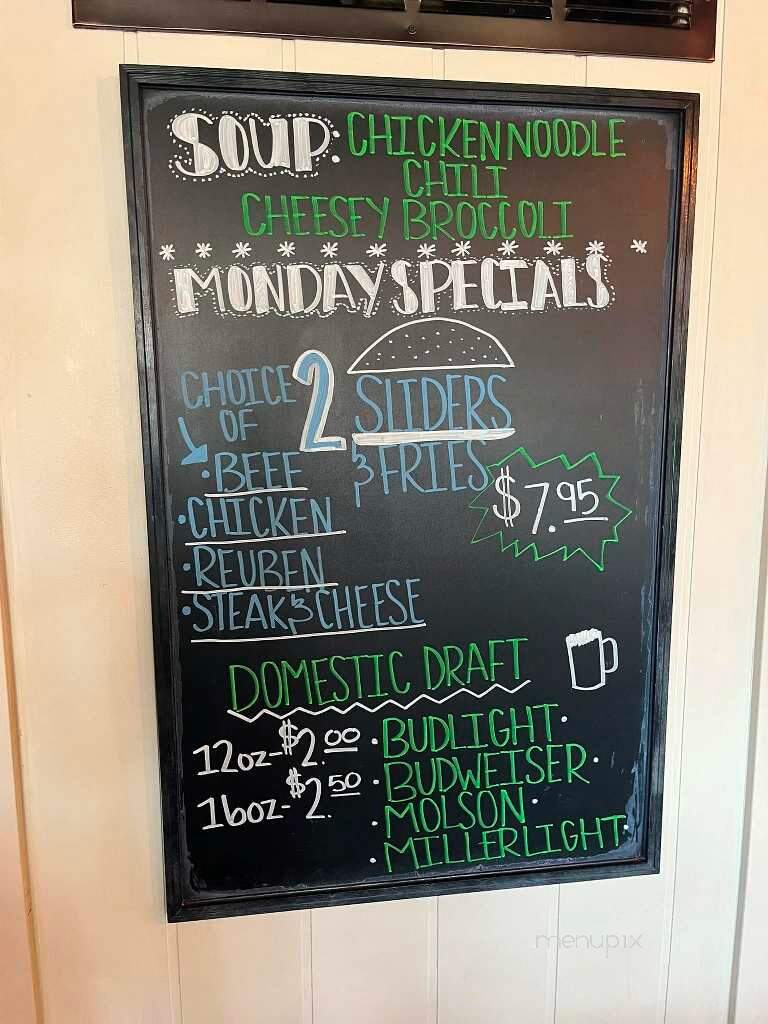 SOUP: CHICKEN NOODLE
CHILI
CHEESEY BROCCOLI
* * * * * * * * * * * *
MONDAY SPECIALS
CHOICE
OF
2 SLIDERS
& FRIES
$7.95
• BEEF
• CHICKEN
• REUBEN
• STEAK & CHEESE
DOMESTIC DRAFT
12oz - $2.00
16oz - $2.50
• BUDLIGHT •
• BUDWEISER •
• MOLSON •
• MILLERLIGHT •
menupix